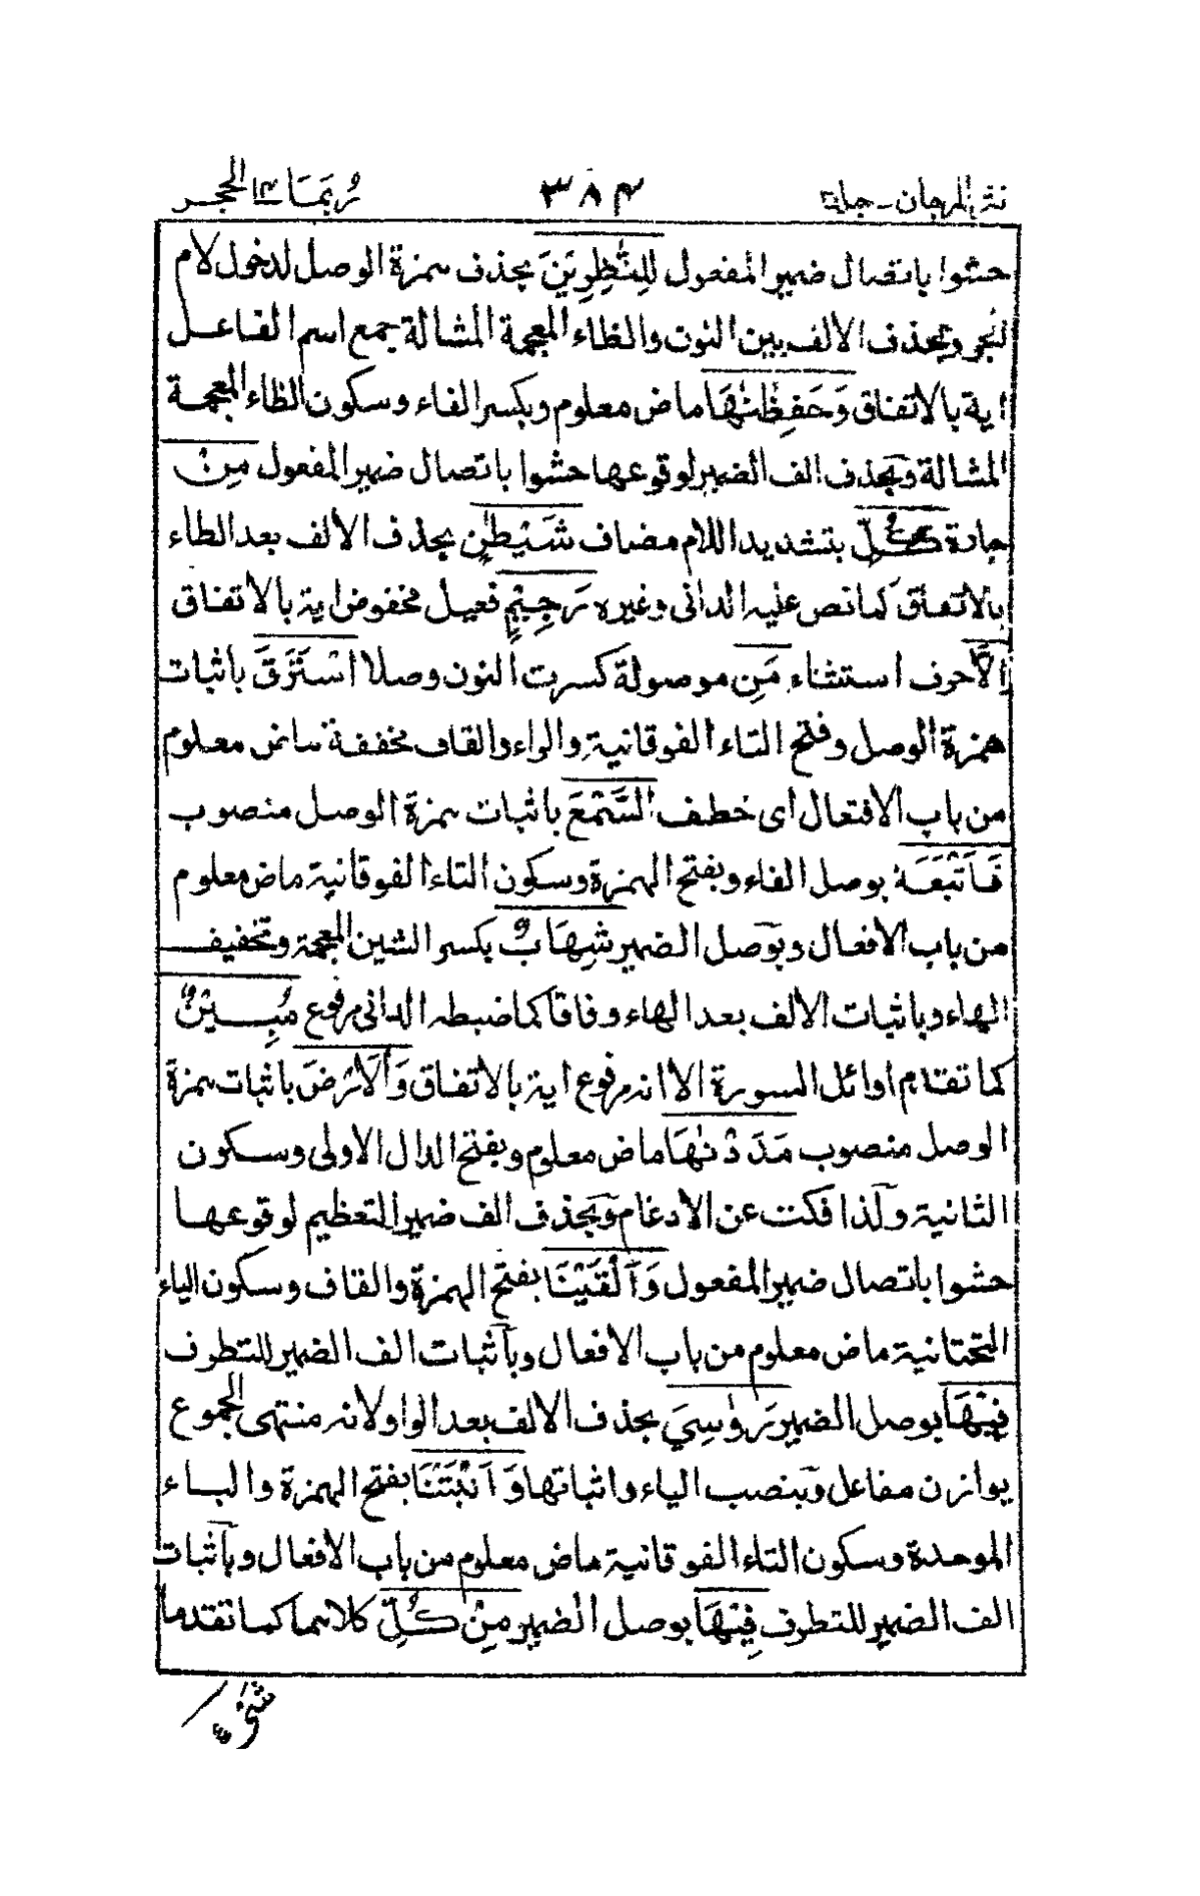 نثر المرجان - جلد ٣٨٤ رُبَمَا ١٤ الحجر
حشوا باتصال ضمير المفعول لِلنّٰظِرِيْنَ بحذف همزة الوصل لدخول لام
الجر وبحذف الالف بين النون والظاء المعجمة المشالة جمع اسم الفاعل
اية بالاتفاق وَحَفِظْنٰهَا ماض معلوم وبكسر الفاء وسكون الظاء المعجمة
المشالة وبحذف الف الضمير لوقوعها حشوا باتصال ضمير المفعول مِنْ
جارة كُلِّ بتشديد اللام مضاف شَيْطٰنٍ بحذف الالف بعد الطاء
بالاتفاق كما نص عليه الدانى وغيره رَجِيْمٍ فعيل مخفوض اية بالاتفاق
اِلَّا حرف استثناء مَنِ موصولة كسرت النون وصلا اسْتَرَقَ باثبات
همزة الوصل وفتح التاء الفوقانية والراء والقاف مخففة ماض معلوم
من باب الافتعال اى خطف السَّمْعَ باثبات همزة الوصل منصوب
فَاَتْبَعَهٗ بوصل الفاء وبفتح الهمزة وسكون التاء الفوقانية ماض معلوم
من باب الافعال وبوصل الضمير شِهَابٌ بكسر الشين المعجمة وتخفيف
الهاء وباثبات الالف بعد الهاء وفاقا كما ضبطه الدانى مرفوع مُبِيْنٌ
كما تقدم اوائل السورة الا انه مرفوع اية بالاتفاق وَالْاَرْضَ باثبات همزة
الوصل منصوب مَدَدْنٰهَا ماض معلوم وبفتح الدال الاولى وسكون
الثانية ولذا فكت عن الادغام وبحذف الف ضمير التعظيم لوقوعها
حشوا باتصال ضمير المفعول وَاَلْقَيْنَا بفتح الهمزة والقاف وسكون الياء
التحتانية ماض معلوم من باب الافعال وباثبات الف الضمير للتطرف
فِيْهَا بوصل الضمير رَوٰسِيَ بحذف الالف بعد الواو لانه منتهى الجموع
يوازن مفاعل وبنصب الياء واثباتها وَاَنْۢبَتْنَا بفتح الهمزة والباء
الموحدة وسكون التاء الفوقانية ماض معلوم من باب الافعال وباثبات
الف الضمير للتطرف فِيْهَا بوصل الضمير مِنْ كُلِّ كلاهما كما تقدما
شَیْءٍ